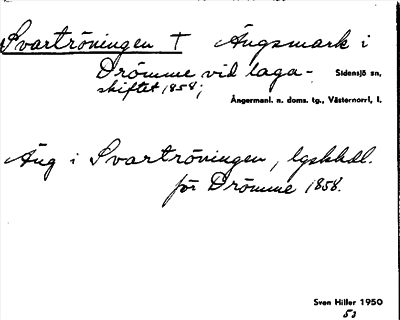 Svartröningen † Ängsmark i
Drömme vid laga-
skiftet 1858;
Sidensjö sn,
Ångermanl. n. doms. tg., Västernorrl. l.
Äng i Svartröningen, lgskhdl.
för Drömme 1858.
Sven Hiller 1950
53